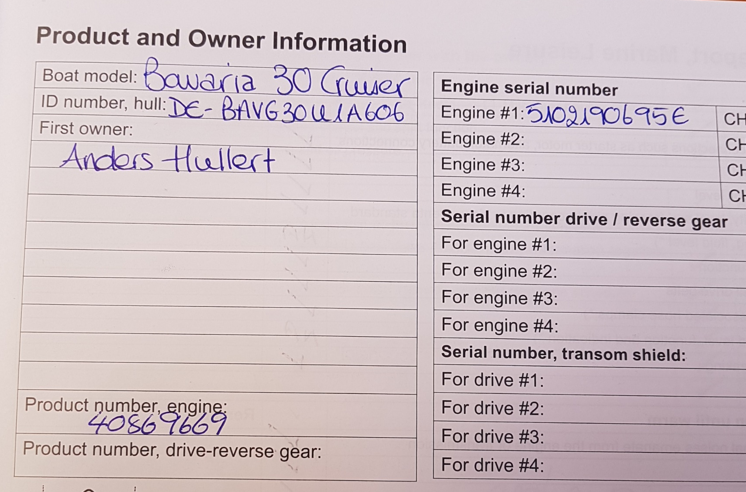 Product and Owner Information
Boat model: Bavaria 30 Cruiser
ID number, hull: DE-BAVG30U1A606
First owner:
Anders Hullert
Product number, engine:
40869669
Product number, drive-reverse gear:
Engine serial number
Engine #1: 5102190695E CH
Engine #2: CH
Engine #3: CH
Engine #4: CH
Serial number drive / reverse gear
For engine #1:
For engine #2:
For engine #3:
For engine #4:
Serial number, transom shield:
For drive #1:
For drive #2:
For drive #3:
For drive #4: